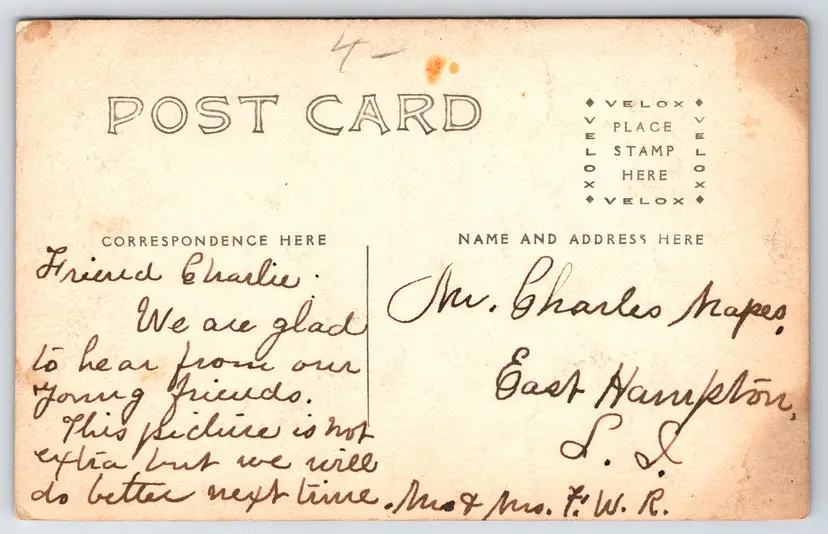 4-
POST CARD
VELOX
VELOX
PLACE
STAMP
HERE
VELOX
VELOX
CORRESPONDENCE HERE
NAME AND ADDRESS HERE
Friend Charlie.
We are glad
to hear from our
young friends.
This picture is not
extra but we will
do better next time. Mr & Mrs. F. W. R.
Mr. Charles Mapes,
East Hampton,
L. I.